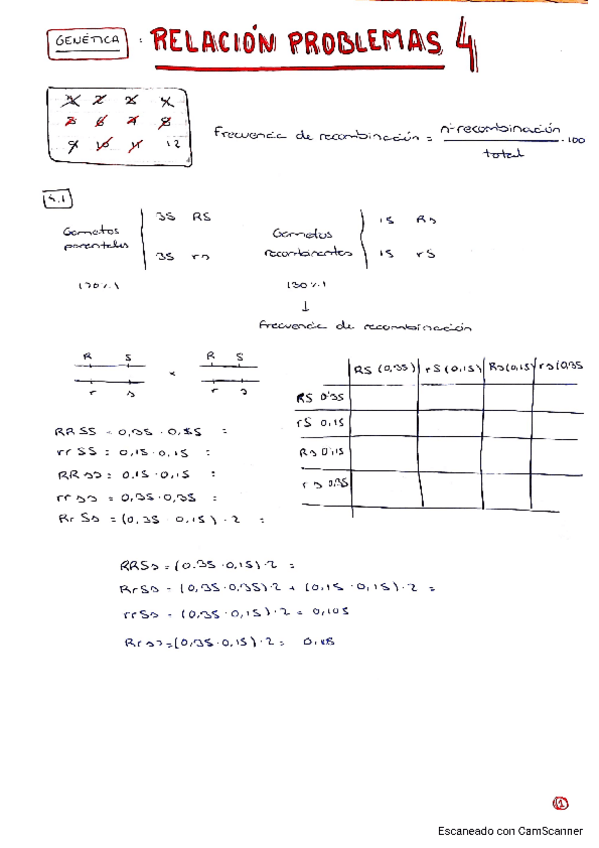 GENÉTICA : RELACIÓN PROBLEMAS 4
1 2 3 4
5 6 7 8
9 10 11 12
Frecuencia de recombinación = nº recombinación / total · 100
4.1
Gametos parentales 35 RS
35 rs
Gametos recombinantes 15 Rs
15 rS
(70%)
(30%)
↓
Frecuencia de recombinación
R S R S
×
r s r s
RS (0,35) rS (0,15) Rs (0,15) rs (0,35
RS 0'35
rS 0,15
Rs 0,15
rs 0,35
RRSS = 0,35 · 0,35 =
rrSS = 0,15 · 0,15 =
RRss = 0,15 · 0,15 =
rrss = 0,35 · 0,35 =
RrSs = (0,35 0,15) · 2 =
RRSs = (0.35 · 0,15) · 2 =
RrSs = (0,35 · 0,35) · 2 + (0,15 · 0,15) · 2 =
rrSs = (0,35 · 0,15) · 2 = 0,105
Rrss = (0,35 · 0,15) · 2 =
1
Escaneado con CamScanner